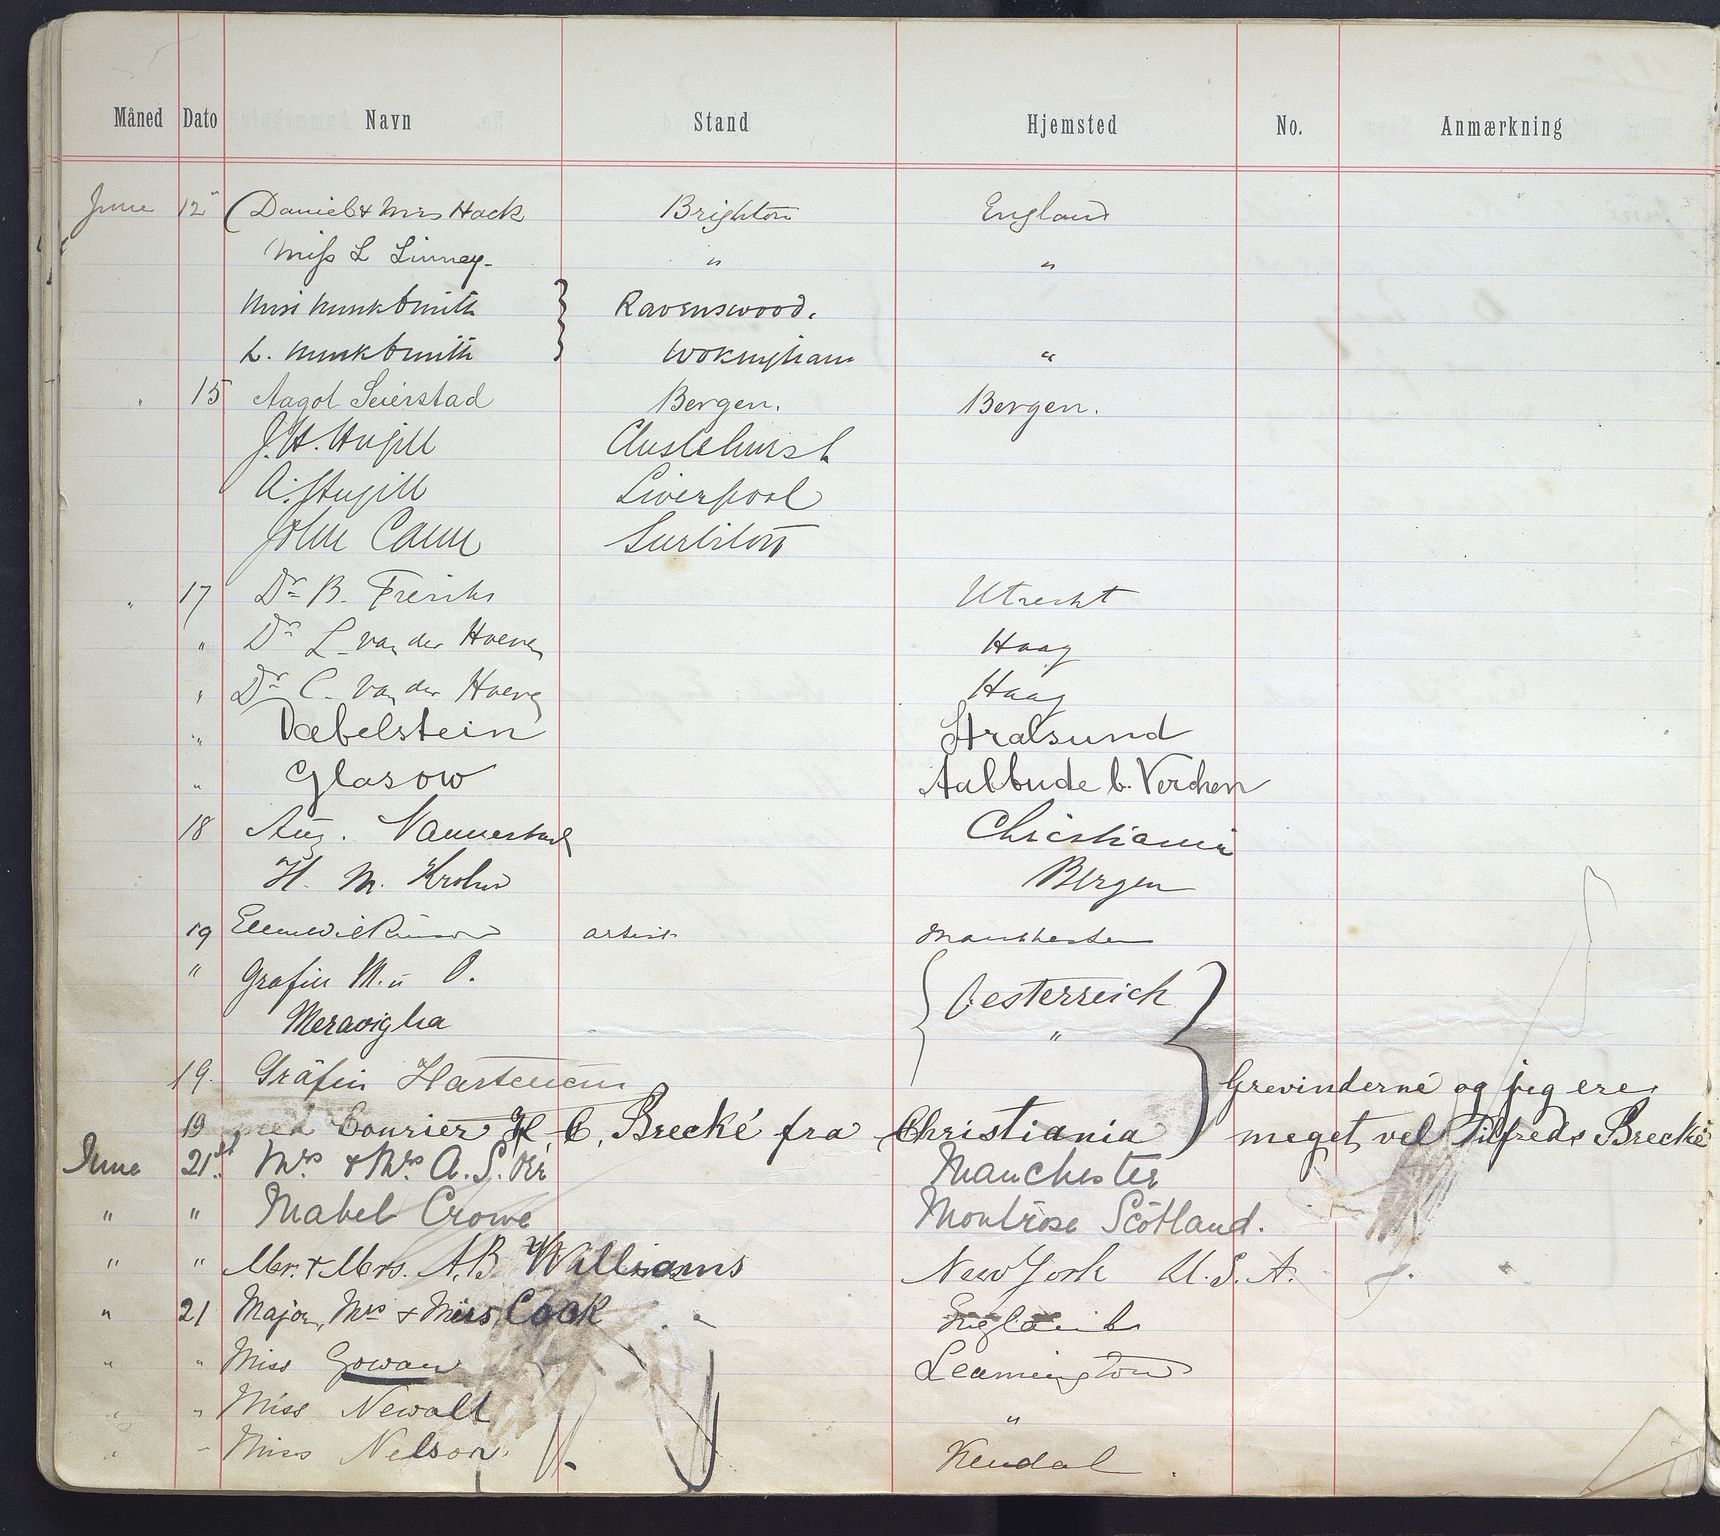 Måned Dato Navn Stand Hjemsted No. Anmærkning
June 12" (Daniel & Mrs Hack Brighton England
Miss L Linney- " "
Miss Munk Smith } Ravenswood.
L. Munk Smith Wokingham "
" 15 Aagot Seierstad Bergen. Bergen.
J. H. Hugill Chislehurst
A. Hugill Liverpool
John Cann Surbiton
" 17 Dr B. Utrecht
" Dr L. van der Hoeven Haag
" Dr C. van der Hoeven Haag
" Dabelstein Stralsund
" Glasow Aalbude b. Verchen
18 Aug. Christiania
H. M. Krohn Bergen
19 Ellen Wilkinson artist Manchester
" Grafin M. u O. { Oesterreich }
Meraviglia "
19. Gräfin Hartenau Grevinderne og jeg ere
19 med Courier H C, Brecke fra Christiania meget vel Tilfreds Brecke
June 21st Mrs & Mrs A. S. Orr Manchester
" " Mabel Crowe Montrose Scotland.
" " Mr. & Mrs. A. B. Williams New York U.S.A.
" 21 Major, Mrs & Miss Cook England
" " Miss Gowan Leamington
" " Miss Newall "
" " Miss Nelson Kendal